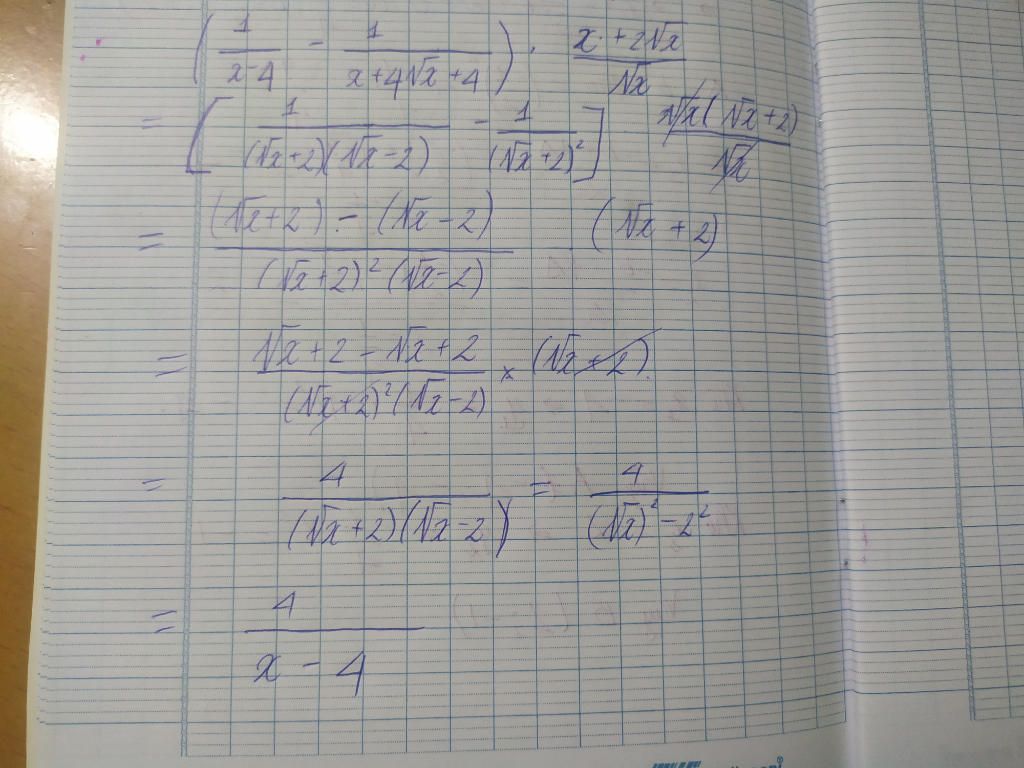 ( 1/(x-4) - 1/(x+4√x+4) ) . (x+2√x)/√x
= [ 1/((√x+2)(√x-2)) - 1/(√x+2)² ] √x(√x+2)/√x
= ((√x+2) - (√x-2))/((√x+2)²(√x-2)) (√x+2)
= (√x+2-√x+2)/((√x+2)²(√x-2)) × (√x+2).
= 4/((√x+2)(√x-2)) = 4/((√x)²-2²)
= 4/(x-4)